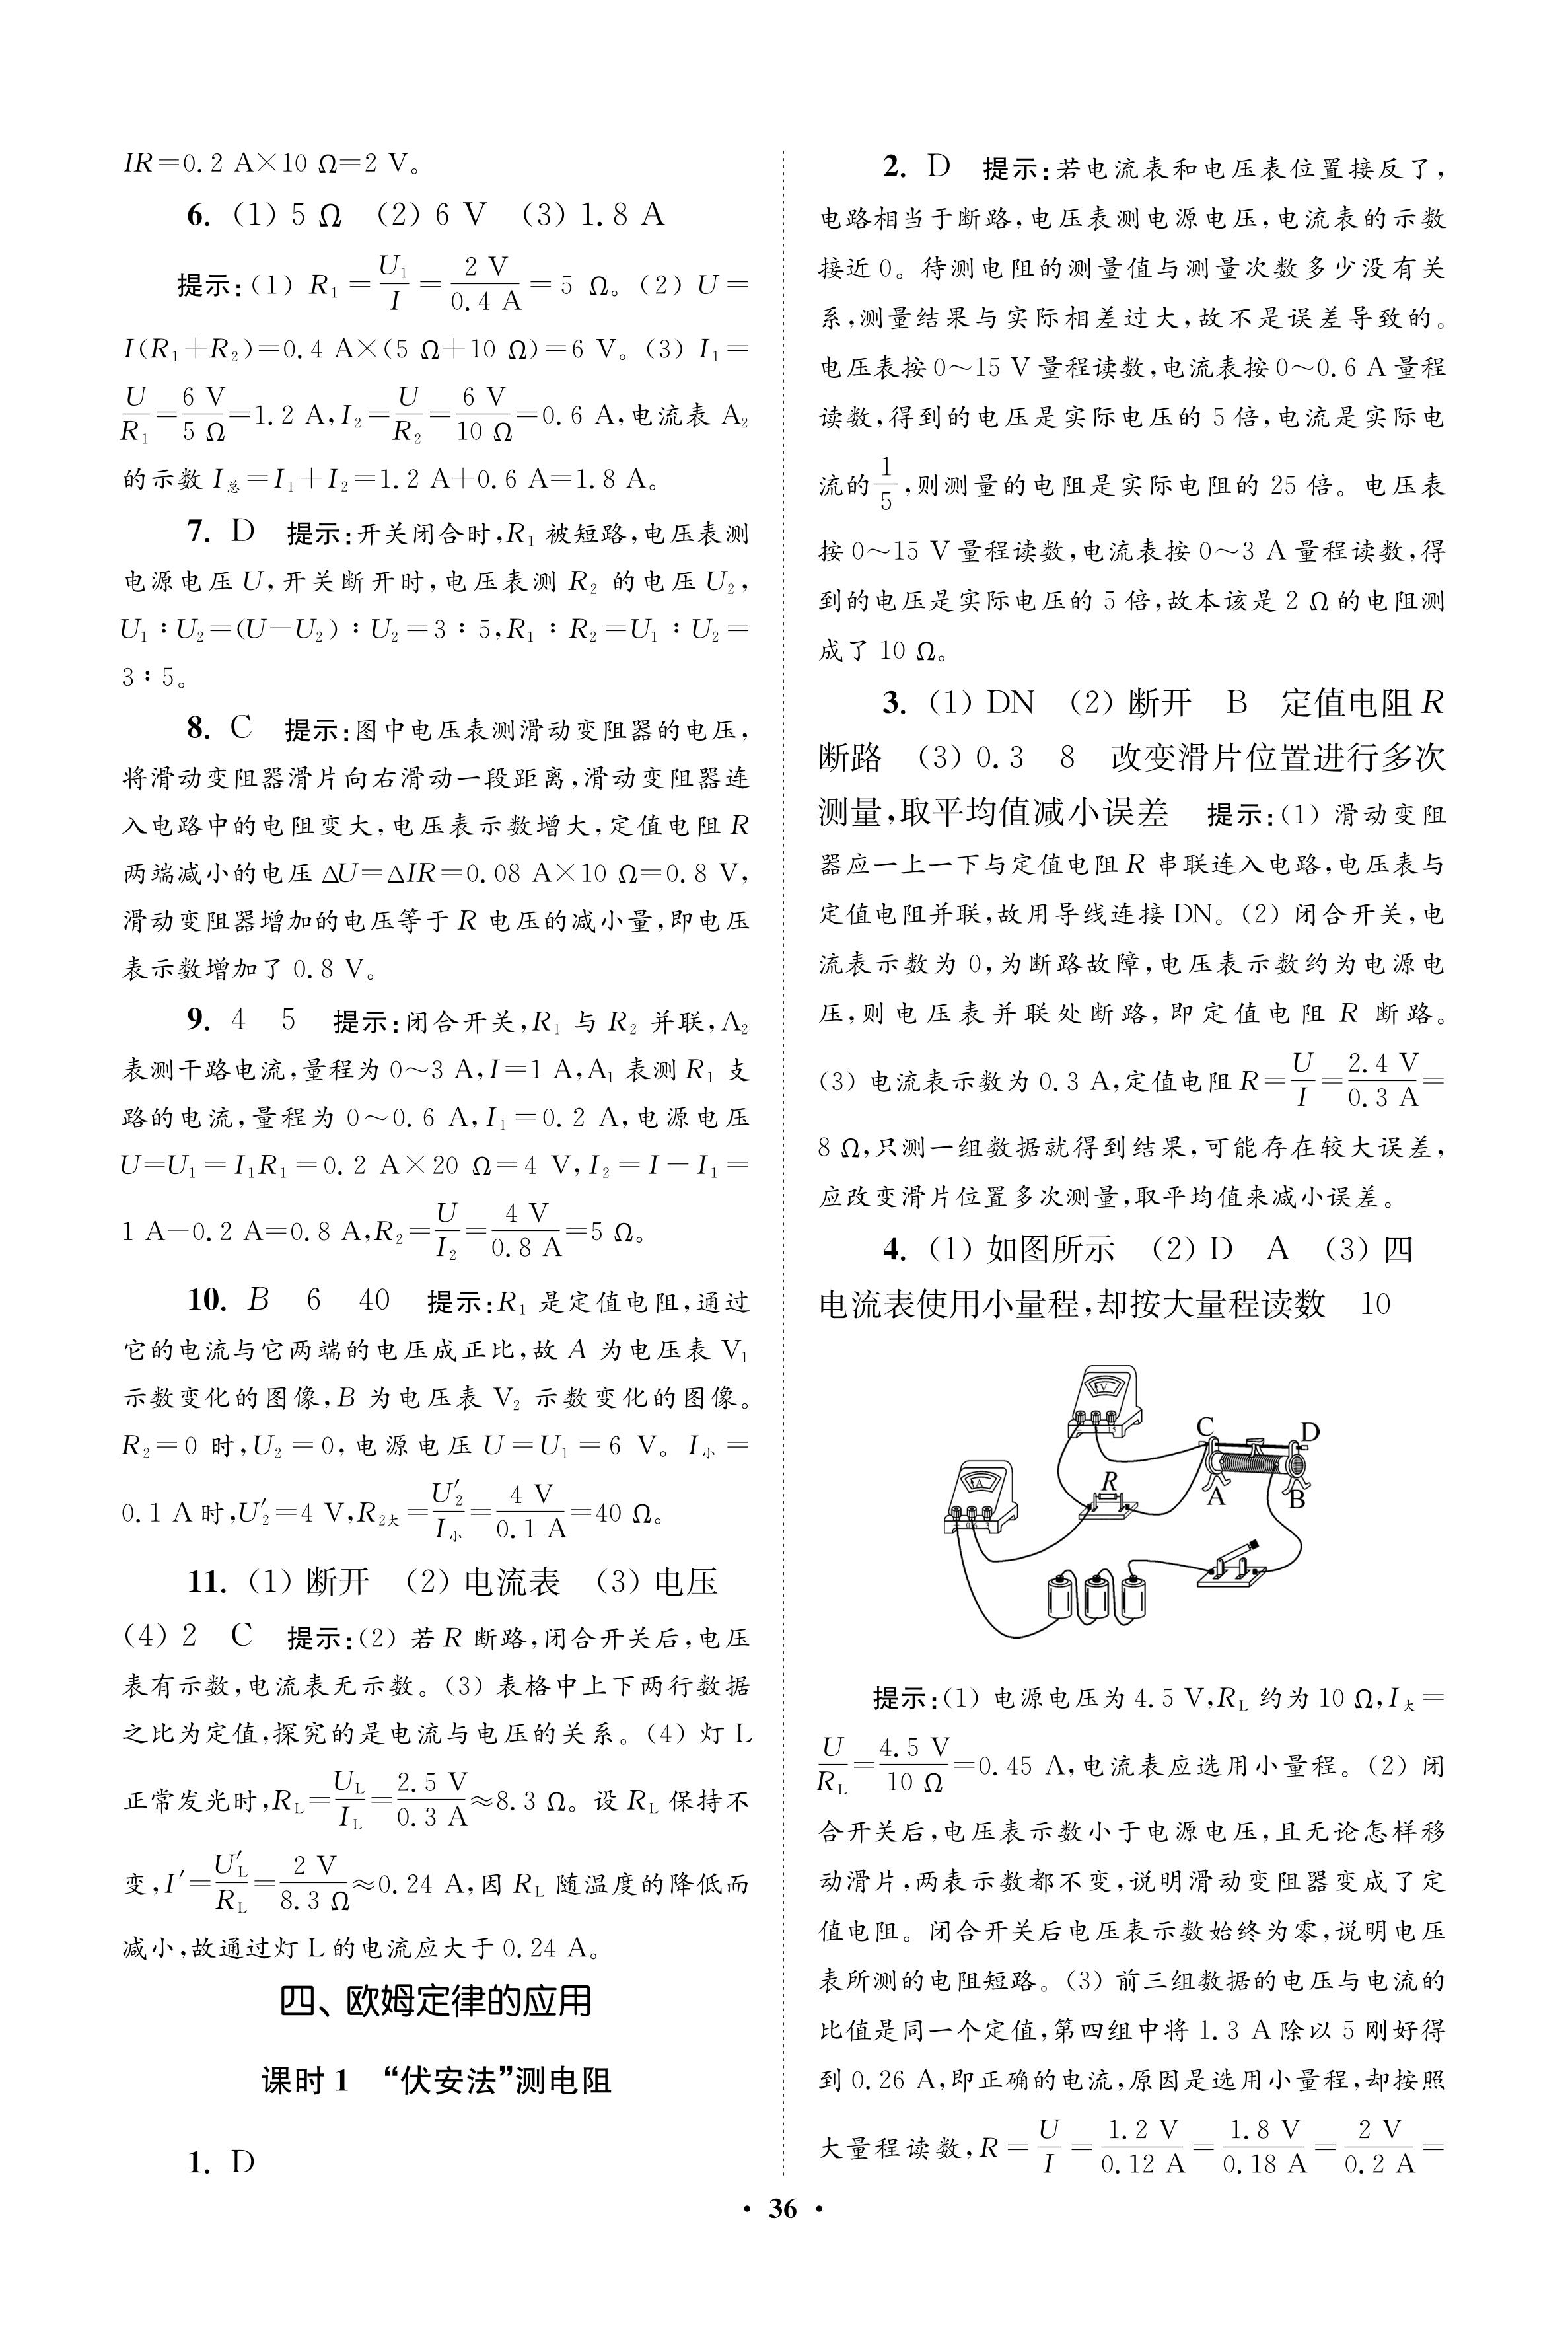 IR=0.2 A×10 Ω=2 V。
6. (1) 5 Ω (2) 6 V (3) 1.8 A
提示:(1) R₁=U₁/I=2 V/0.4 A=5 Ω。(2) U=
I(R₁+R₂)=0.4 A×(5 Ω+10 Ω)=6 V。(3) I₁=
U/R₁=6 V/5 Ω=1.2 A,I₂=U/R₂=6 V/10 Ω=0.6 A,电流表 A₂
的示数 I总=I₁+I₂=1.2 A+0.6 A=1.8 A。
7. D 提示:开关闭合时,R₁ 被短路,电压表测
电源电压 U,开关断开时,电压表测 R₂ 的电压 U₂,
U₁∶U₂=(U-U₂)∶U₂=3∶5,R₁∶R₂=U₁∶U₂=
3∶5。
8. C 提示:图中电压表测滑动变阻器的电压,
将滑动变阻器滑片向右滑动一段距离,滑动变阻器连
入电路中的电阻变大,电压表示数增大,定值电阻 R
两端减小的电压 ΔU=ΔIR=0.08 A×10 Ω=0.8 V,
滑动变阻器增加的电压等于 R 电压的减小量,即电压
表示数增加了 0.8 V。
9. 4 5 提示:闭合开关,R₁ 与 R₂ 并联,A₂
表测干路电流,量程为 0~3 A,I=1 A,A₁ 表测 R₁ 支
路的电流,量程为 0~0.6 A,I₁=0.2 A,电源电压
U=U₁=I₁R₁=0.2 A×20 Ω=4 V,I₂=I-I₁=
1 A-0.2 A=0.8 A,R₂=U/I₂=4 V/0.8 A=5 Ω。
10. B 6 40 提示:R₁ 是定值电阻,通过
它的电流与它两端的电压成正比,故 A 为电压表 V₁
示数变化的图像,B 为电压表 V₂ 示数变化的图像。
R₂=0 时,U₂=0,电源电压 U=U₁=6 V。I小=
0.1 A 时,U₂′=4 V,R₂大=U₂′/I小=4 V/0.1 A=40 Ω。
11. (1) 断开 (2) 电流表 (3) 电压
(4) 2 C 提示:(2) 若 R 断路,闭合开关后,电压
表有示数,电流表无示数。(3) 表格中上下两行数据
之比为定值,探究的是电流与电压的关系。(4) 灯 L
正常发光时,R_L=U_L/I_L=2.5 V/0.3 A≈8.3 Ω。设 R_L 保持不
变,I′=U_L′/R_L=2 V/8.3 Ω≈0.24 A,因 R_L 随温度的降低而
减小,故通过灯 L 的电流应大于 0.24 A。
四、欧姆定律的应用
课时 1 “伏安法”测电阻
1. D
2. D 提示:若电流表和电压表位置接反了,
电路相当于断路,电压表测电源电压,电流表的示数
接近 0。待测电阻的测量值与测量次数多少没有关
系,测量结果与实际相差过大,故不是误差导致的。
电压表按 0~15 V 量程读数,电流表按 0~0.6 A 量程
读数,得到的电压是实际电压的 5 倍,电流是实际电
流的1/5,则测量的电阻是实际电阻的 25 倍。电压表
按 0~15 V 量程读数,电流表按 0~3 A 量程读数,得
到的电压是实际电压的 5 倍,故本该是 2 Ω 的电阻测
成了 10 Ω。
3. (1) DN (2) 断开 B 定值电阻 R
断路 (3) 0.3 8 改变滑片位置进行多次
测量,取平均值减小误差 提示:(1) 滑动变阻
器应一上一下与定值电阻 R 串联连入电路,电压表与
定值电阻并联,故用导线连接 DN。(2) 闭合开关,电
流表示数为 0,为断路故障,电压表示数约为电源电
压,则电压表并联处断路,即定值电阻 R 断路。
(3) 电流表示数为 0.3 A,定值电阻 R=U/I=2.4 V/0.3 A=
8 Ω,只测一组数据就得到结果,可能存在较大误差,
应改变滑片位置多次测量,取平均值来减小误差。
4. (1) 如图所示 (2) D A (3) 四
电流表使用小量程,却按大量程读数 10
V
C
D
A
R
A
B
提示:(1) 电源电压为 4.5 V,R_L 约为 10 Ω,I大=
U/R_L=4.5 V/10 Ω=0.45 A,电流表应选用小量程。(2) 闭
合开关后,电压表示数小于电源电压,且无论怎样移
动滑片,两表示数都不变,说明滑动变阻器变成了定
值电阻。闭合开关后电压表示数始终为零,说明电压
表所测的电阻短路。(3) 前三组数据的电压与电流的
比值是同一个定值,第四组中将 1.3 A 除以 5 刚好得
到 0.26 A,即正确的电流,原因是选用小量程,却按照
大量程读数,R=U/I=1.2 V/0.12 A=1.8 V/0.18 A=2 V/0.2 A=
• 36 •